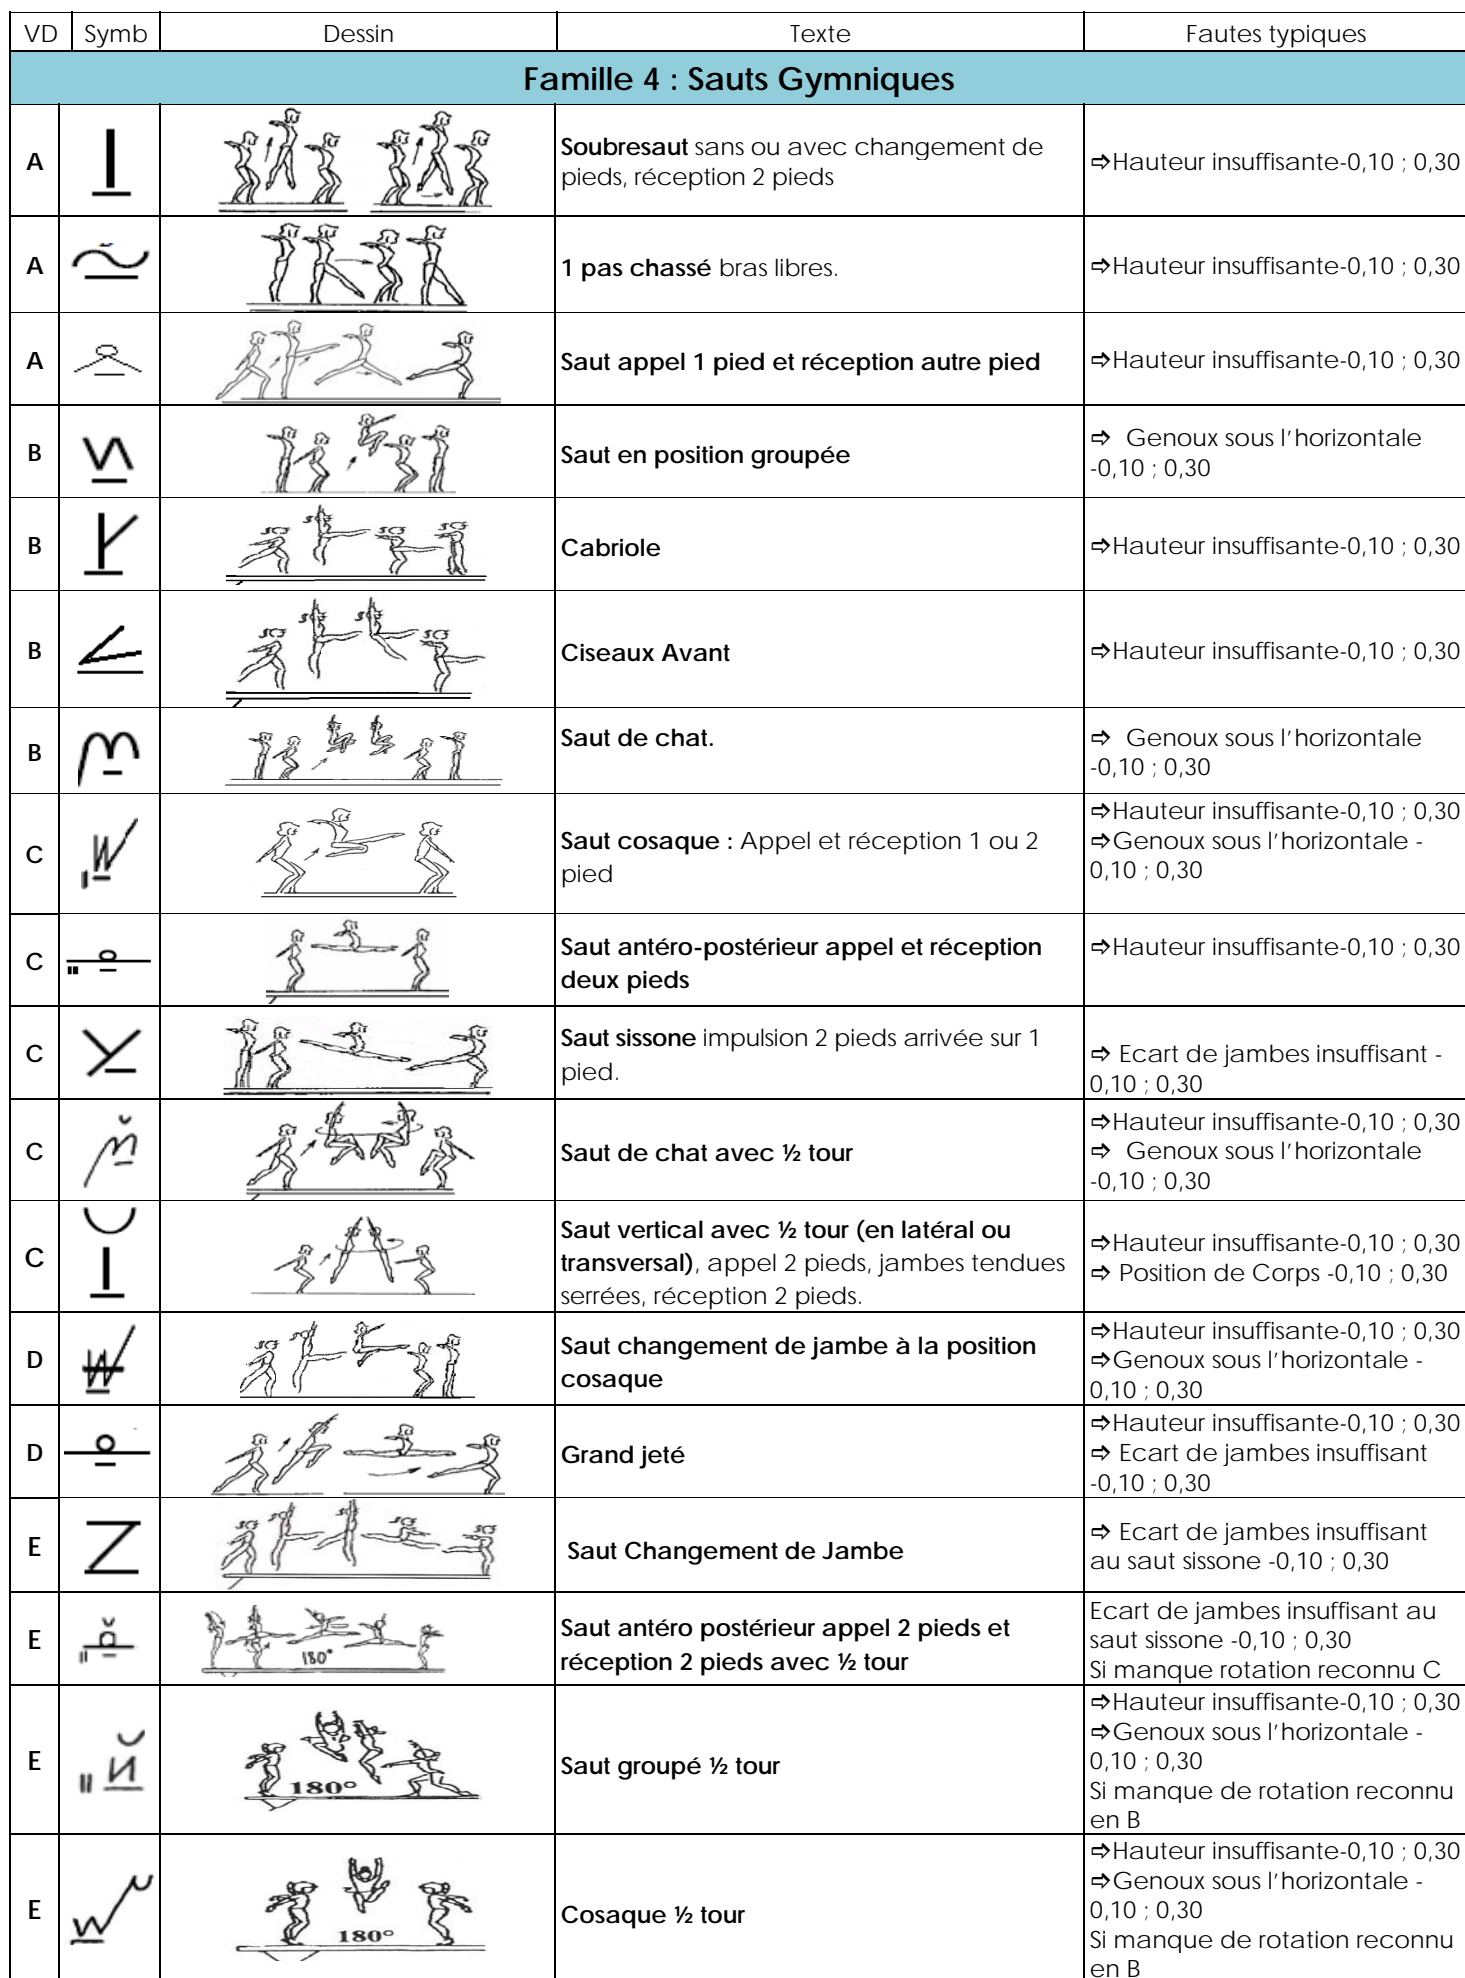 VD Symb Dessin Texte Fautes typiques
Famille 4 : Sauts Gymniques
A
Soubresaut sans ou avec changement de
pieds, réception 2 pieds
⇨Hauteur insuffisante-0,10 ; 0,30
A
1 pas chassé bras libres.
⇨Hauteur insuffisante-0,10 ; 0,30
A
Saut appel 1 pied et réception autre pied
⇨Hauteur insuffisante-0,10 ; 0,30
B
Saut en position groupée
⇨ Genoux sous l'horizontale
-0,10 ; 0,30
B
Cabriole
⇨Hauteur insuffisante-0,10 ; 0,30
B
Ciseaux Avant
⇨Hauteur insuffisante-0,10 ; 0,30
B
Saut de chat.
⇨ Genoux sous l'horizontale
-0,10 ; 0,30
C
Saut cosaque : Appel et réception 1 ou 2
pied
⇨Hauteur insuffisante-0,10 ; 0,30
⇨Genoux sous l'horizontale -
0,10 ; 0,30
C
Saut antéro-postérieur appel et réception
deux pieds
⇨Hauteur insuffisante-0,10 ; 0,30
C
Saut sissone impulsion 2 pieds arrivée sur 1
pied.
⇨ Ecart de jambes insuffisant -
0,10 ; 0,30
C
Saut de chat avec ½ tour
⇨Hauteur insuffisante-0,10 ; 0,30
⇨ Genoux sous l'horizontale
-0,10 ; 0,30
C
Saut vertical avec ½ tour (en latéral ou
transversal), appel 2 pieds, jambes tendues
serrées, réception 2 pieds.
⇨Hauteur insuffisante-0,10 ; 0,30
⇨ Position de Corps -0,10 ; 0,30
D
Saut changement de jambe à la position
cosaque
⇨Hauteur insuffisante-0,10 ; 0,30
⇨Genoux sous l'horizontale -
0,10 ; 0,30
D
Grand jeté
⇨Hauteur insuffisante-0,10 ; 0,30
⇨ Ecart de jambes insuffisant
-0,10 ; 0,30
E
Saut Changement de Jambe
⇨ Ecart de jambes insuffisant
au saut sissone -0,10 ; 0,30
E
180°
Saut antéro postérieur appel 2 pieds et
réception 2 pieds avec ½ tour
Ecart de jambes insuffisant au
saut sissone -0,10 ; 0,30
Si manque rotation reconnu C
E
180°
Saut groupé ½ tour
⇨Hauteur insuffisante-0,10 ; 0,30
⇨Genoux sous l'horizontale -
0,10 ; 0,30
Si manque de rotation reconnu
en B
E
180°
Cosaque ½ tour
⇨Hauteur insuffisante-0,10 ; 0,30
⇨Genoux sous l'horizontale -
0,10 ; 0,30
Si manque de rotation reconnu
en B